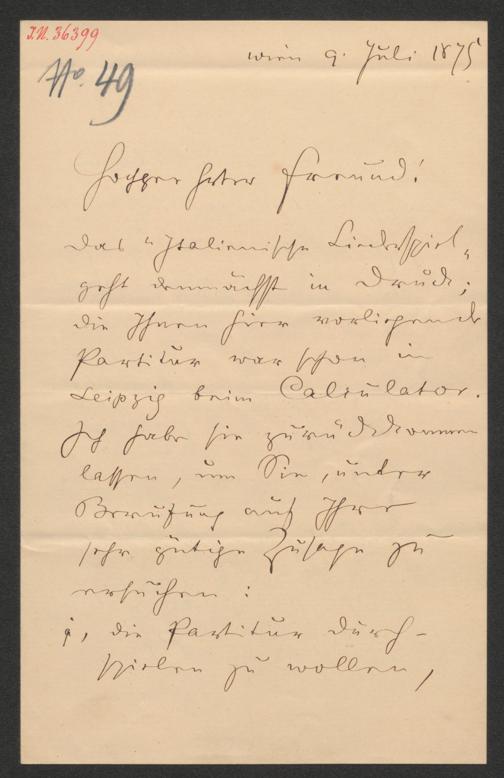 I.N. 36399
No. 49
Wien 9. Juli 1875
Hochgeehrter Freund!
Das "Italienische Liederspiel"
geht demnächst in Druck;
die Ihnen hier vorliegende
Partitur war schon in
Leipzig beim Calculator.
Ich habe sie zurückkommen
lassen, um Sie, unter
Berufung auf Ihre
sehr gütige Zusage zu
ersuchen:
1, die Partitur durch-
spielen zu wollen,